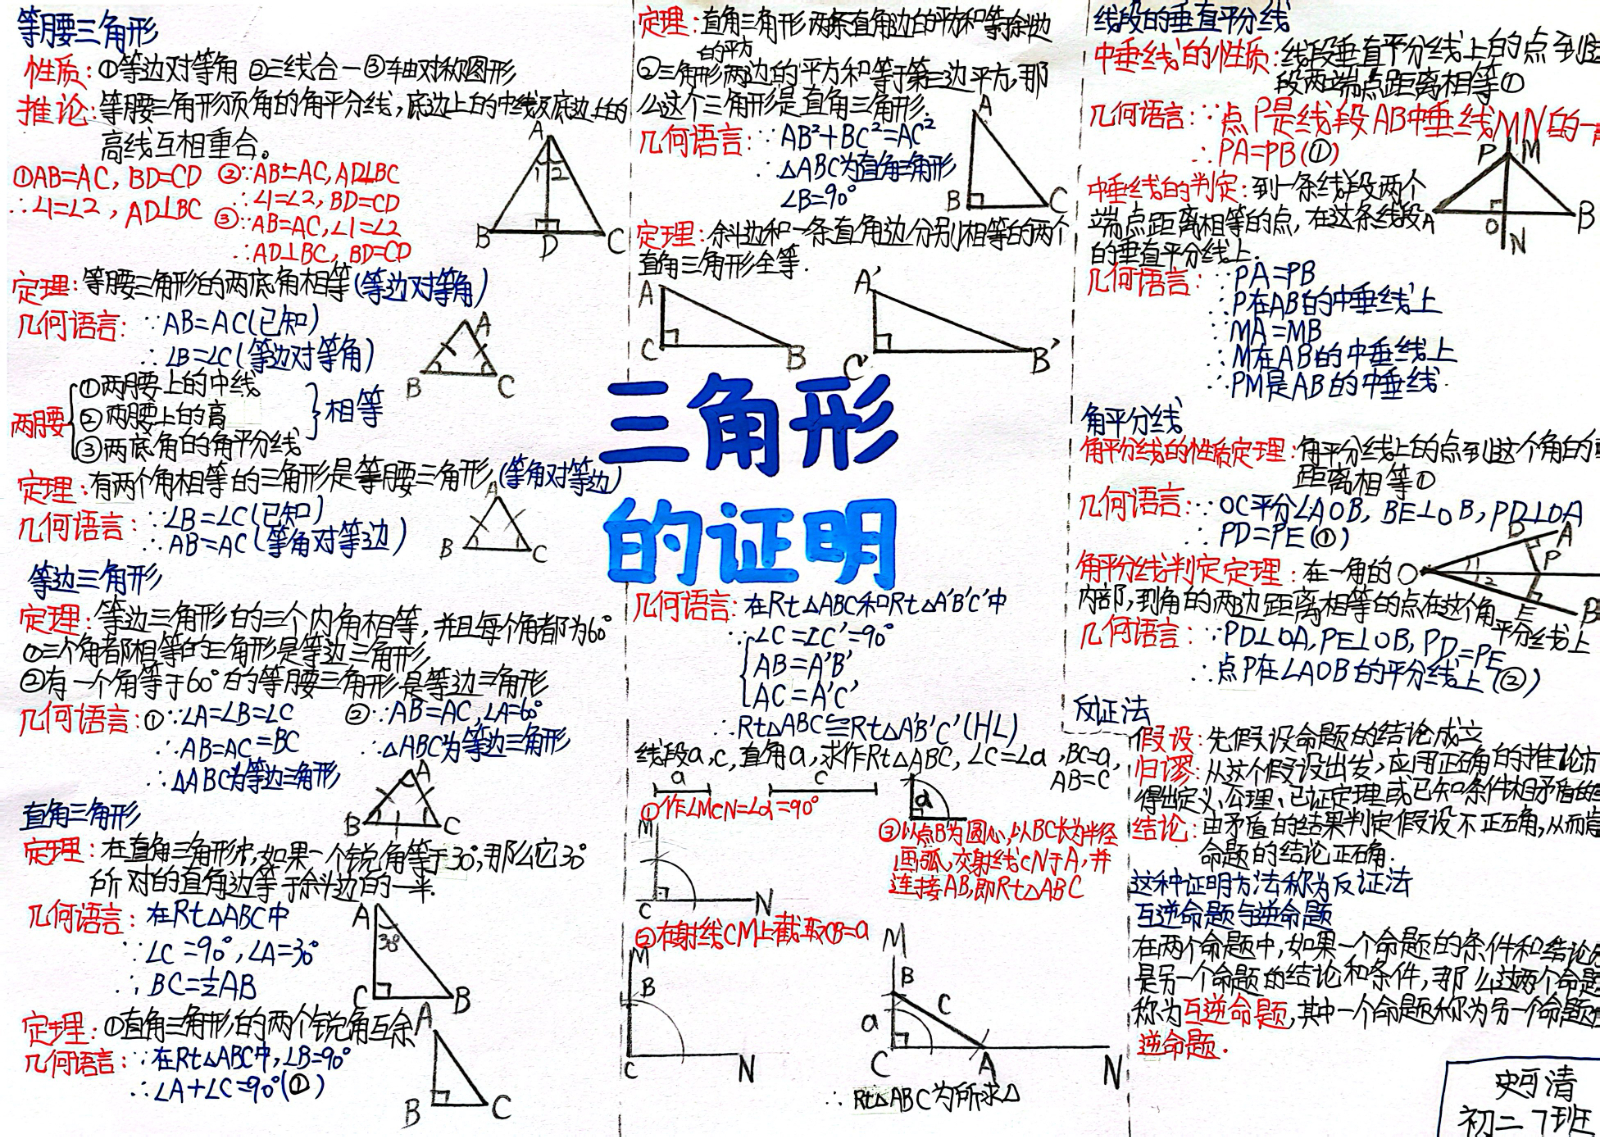 等腰三角形
性质：①等边对等角 ②三线合一 ③轴对称图形
推论：等腰三角形顶角的角平分线，底边上的中线及底边上的
高线互相重合。
①AB=AC, BD=CD ②∵AB=AC, AD⊥BC
∴∠1=∠2, AD⊥BC ∴∠1=∠2, BD=CD
③∵AB=AC, ∠1=∠2
∴AD⊥BC, BD=CD
A
1 2
B D C
定理：等腰三角形的两底角相等(等边对等角)
几何语言：∵AB=AC(已知)
∴∠B=∠C(等边对等角)
A
B C
两腰
①两腰上的中线
②两腰上的高
③两底角的角平分线
相等
定理：有两个角相等的三角形是等腰三角形(等角对等边)
几何语言：∵∠B=∠C(已知)
∴AB=AC(等角对等边)
A
B C
等边三角形
定理：等边三角形的三个内角相等，并且每个角都为60°
①三个角都相等的三角形是等边三角形
②有一个角等于60°的等腰三角形是等边三角形
几何语言：①∵∠A=∠B=∠C ②∵AB=AC, ∠A=60°
∴AB=AC=BC ∴△ABC为等边三角形
∴△ABC为等边三角形
A
B C
直角三角形
定理：在直角三角形中，如果一个锐角等于30°，那么它30°
所对的直角边等于斜边的一半.
几何语言：在Rt△ABC中
∵∠C=90°, ∠A=30°
∴BC=½AB
A
30°
C B
定理：①直角三角形的两个锐角互余
几何语言：∵在Rt△ABC中, ∠B=90°
∴∠A+∠C=90°(①)
A
B C
定理：直角三角形两条直角边的平方和等于斜边
的平方
②三角形两边的平方和等于第三边平方，那
么这个三角形是直角三角形.
几何语言：∵AB²+BC²=AC²
∴△ABC为直角三角形
∠B=90°
A
B C
定理：斜边和一条直角边分别相等的两个
直角三角形全等.
A
C B
A'
C' B'
三角形
的证明
几何语言：在Rt△ABC和Rt△A'B'C'中
∵∠C=∠C'=90°
AB=A'B'
AC=A'C'
∴Rt△ABC≌Rt△A'B'C'(HL)
线段a,c,直角a,求作Rt△ABC, ∠C=∠a, BC=a,
AB=C
a c a
①作∠MCN=∠α=90°
M
C N
②在射线CM上截取CB=a
M
B
C N
③以点B为圆心，以BC长为半径
画弧，交射线CN于A，并
连接AB,即Rt△ABC
M
B
c
a
C A N
∴Rt△ABC为所求△
线段的垂直平分线
中垂线的性质：线段垂直平分线上的点到
段两端点距离相等①
几何语言：∵点P是线段AB中垂线MN的一
∴PA=PB(①)
中垂线的判定：到一条线段两个
端点距离相等的点，在这条线段
的垂直平分线上.
P M
A O B
N
几何语言：∵PA=PB
∴P在AB的中垂线上
∵MA=MB
∴M在AB的中垂线上
∴PM是AB的中垂线.
角平分线
角平分线的性质定理：角平分线上的点到这个角的
距离相等①
几何语言：∵OC平分∠AOB, BE⊥OB, PD⊥OA
∴PD=PE(①)
角平分线判定定理：在一角的
内部，到角的两边距离相等的点在这个角平分线上
D A
O 1 P
2
E B
几何语言：∵PD⊥OA, PE⊥OB, PD=PE
∴点P在∠AOB的平分线上(②)
反证法
假设：先假设命题的结论成立
归谬：从这个假设出发，应用正确的推论方
得出定义、公理、已证定理或已知条件相矛盾的
结论：由矛盾的结果判定假设不正确，从而
命题的结论正确.
这种证明方法称为反证法
互逆命题与逆命题
在两个命题中，如果一个命题的条件和结论
是另一个命题的结论和条件，那么这两个命题
称为互逆命题，其中一个命题称为另一个命题
逆命题.
清
初二7班